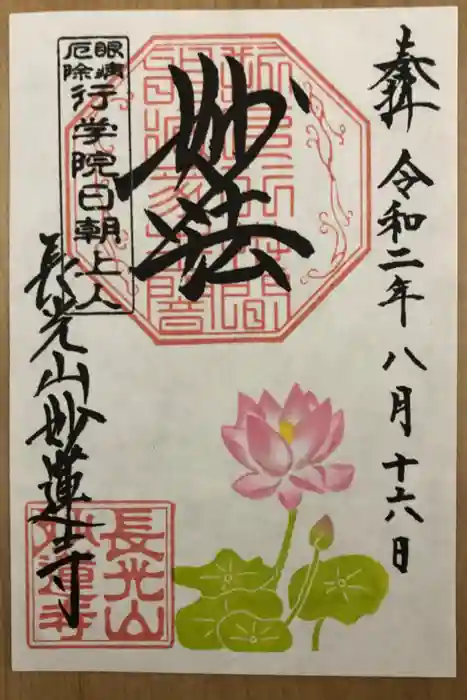 奉拝 令和二年八月十六日
妙法
眼病
厄除
行学院日朝上人
長光山妙蓮寺
長光山
妙蓮寺